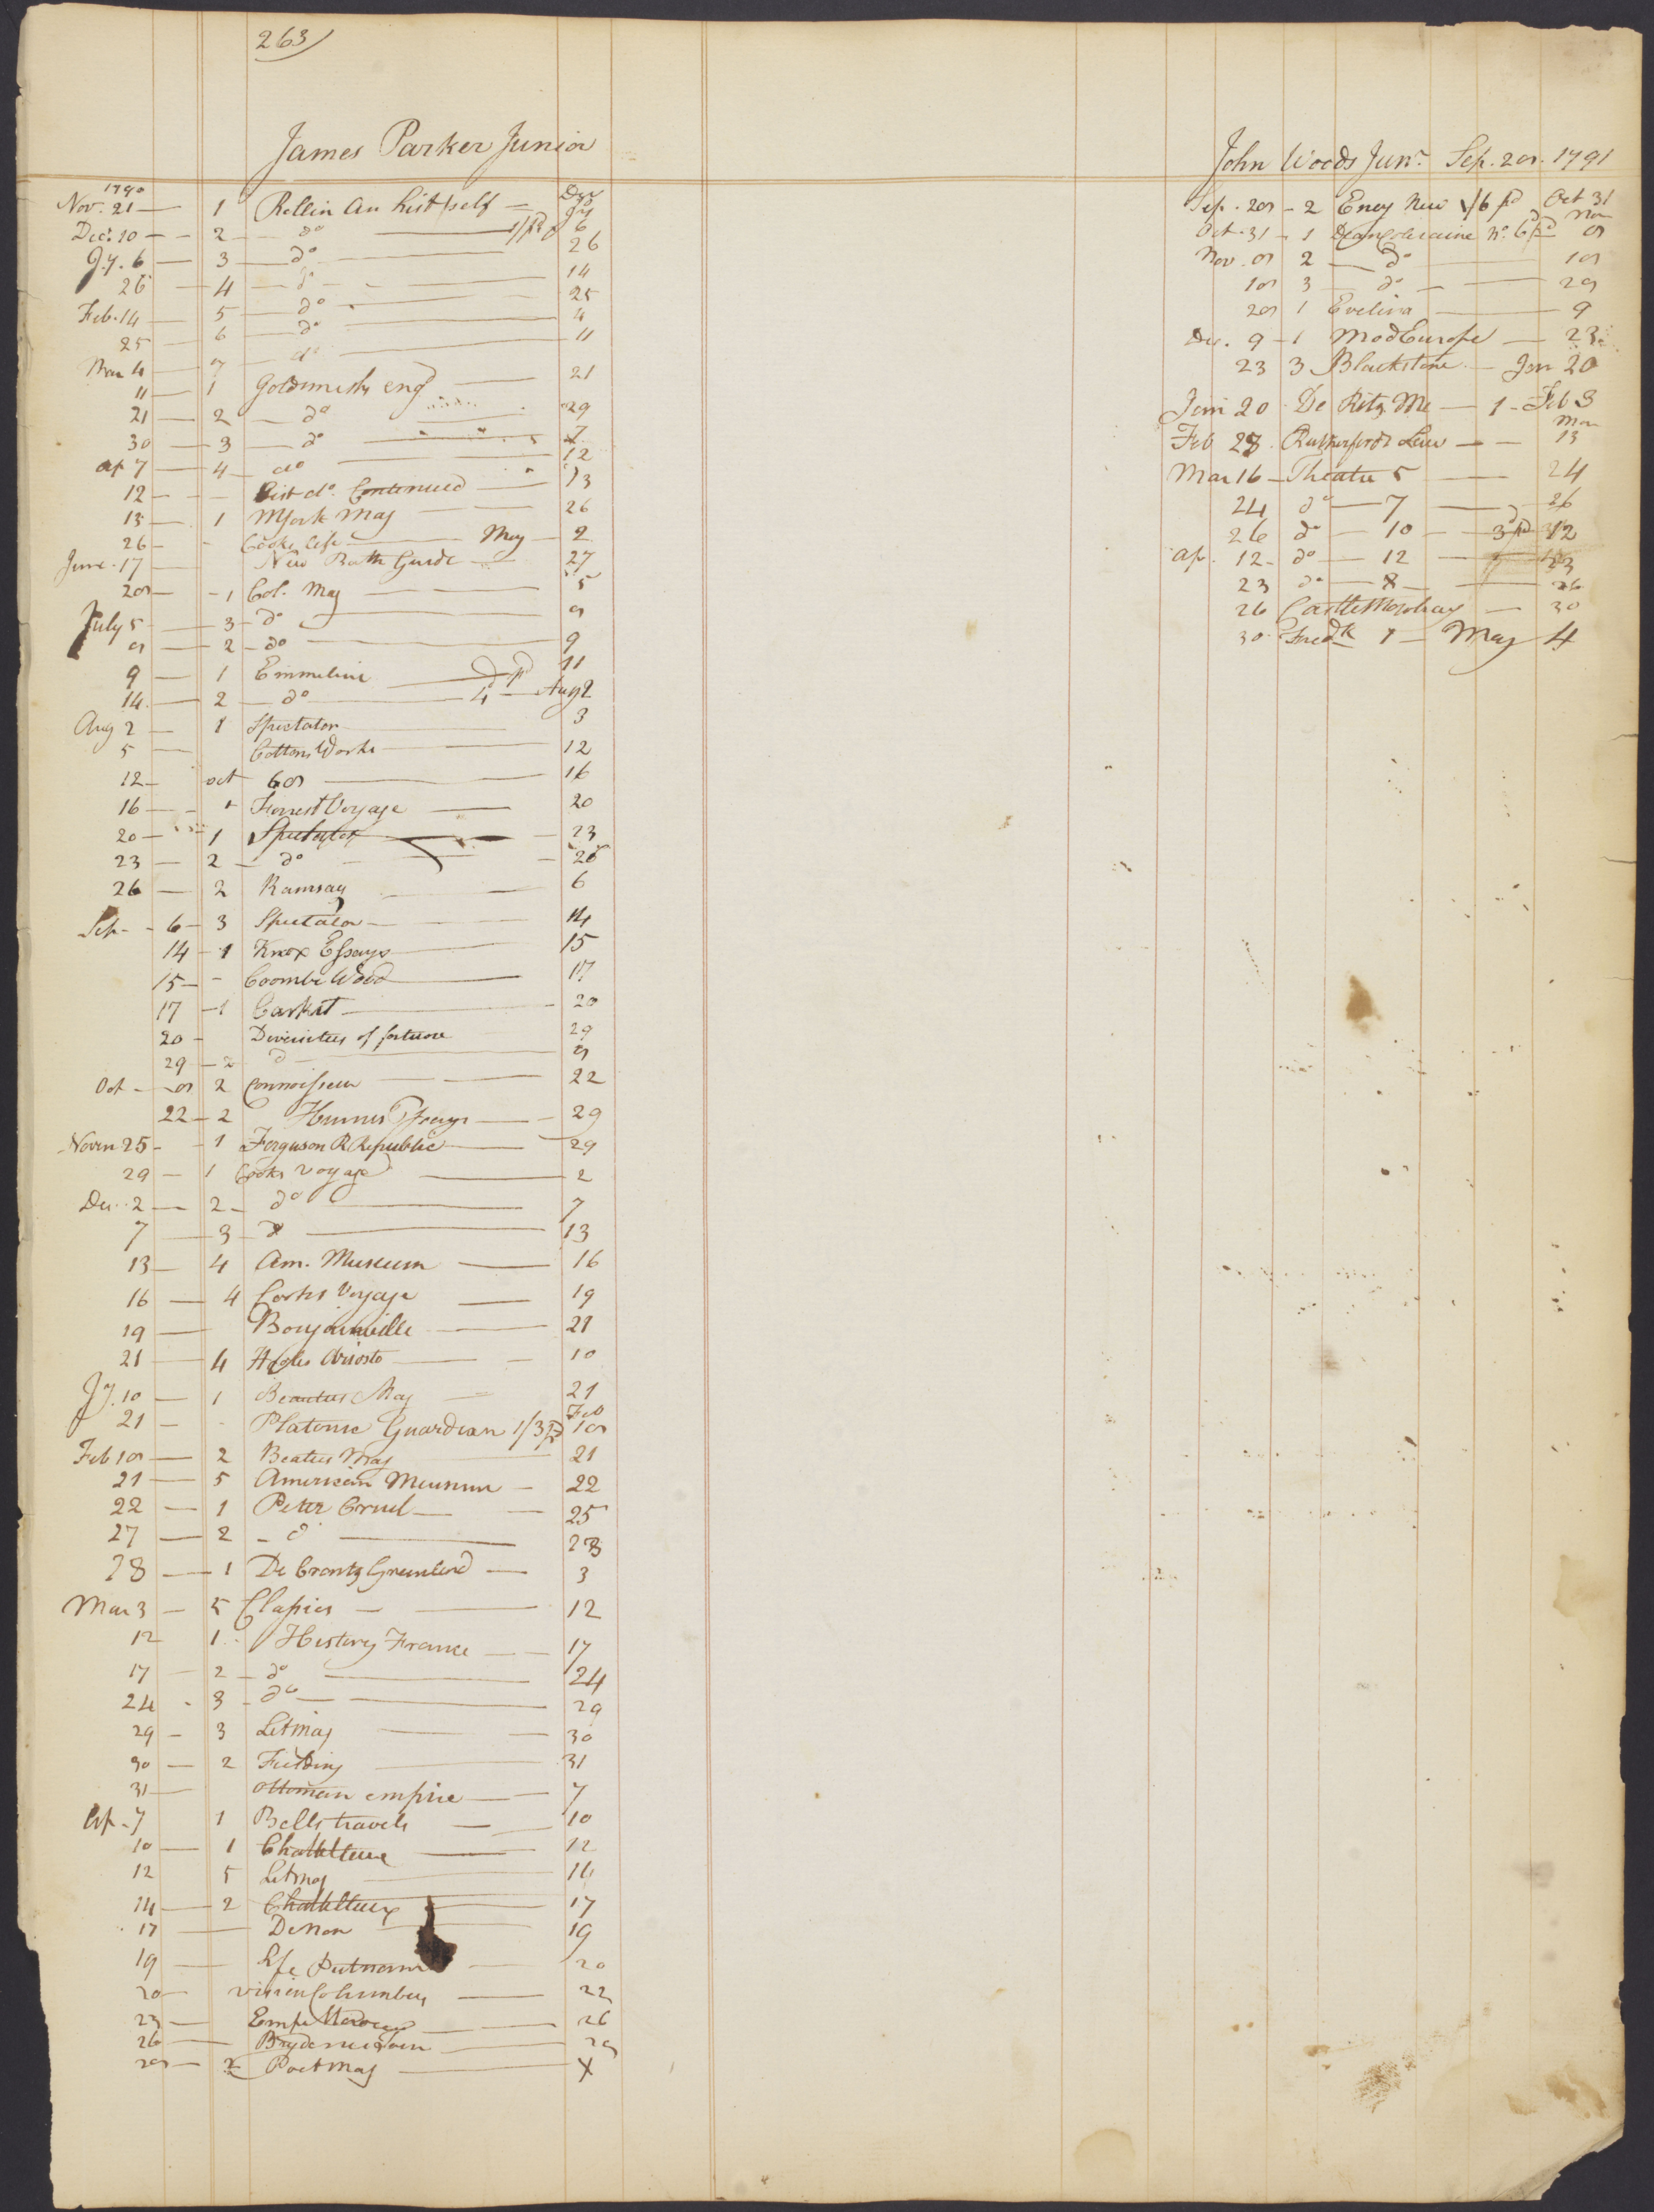 263
James Parker Junior
1790 Dec
Nov. 21 — 1 Rollin An Hist self — Jy
Dec. 10 — 2 — do — 1/ pd 6
J.y. 6 — 3 — do — 26
26 — 4 — do — 14
Feb. 14 — 5 — do — 25
25 — 6 — do — 4
Mar 4 — 7 — do — 11
11 — 1 Goldsmiths eng — 21
21 — 2 — do — 29
30 — 3 — do — 7
Ap 7 — 4 — do — 12
12 — Hist do. Continued — 13
13 — 1 NYork Mag — 26
26 — Cooks life — May — 2
June. 17 — New Bath Guide — 27
28 — 1 Col. Mag — 5
July 5 — 3 — do — 8
8 — 2 — do — 9
9 — 1 Emmeline — pd 11
14 — 2 — do — 4 — Aug 2
Aug 2 — 1 Spectator — 3
5 — Cottons Works — 12
12 — oct 68 — 16
16 — 1 Forrest Voyage — 20
20 — 1 Spectator — 23
23 — 2 — do — 26
26 — 2 Ramsay — 6
Sep — 6 — 3 Spectator — 14
14 — 1 Knox Essays — 15
15 — Coombe Wood — 17
17 — 1 Casket — 20
20 — of fortune 29
29 — 2 d — 8
Oct — 8 2 Connoisseur — 22
22 — 2 Humes Essays — 29
Novem 25 — 1 Ferguson R Republic — 29
29 — 1 Cooks Voyage — 2
De. 2 — 2 — do — 7
7 — 3 — d — 13
13 — 4 Am. Museum — 16
16 — 4 Cooks Voyage — 19
19 — Bougainville — 21
21 — 4 Hooles Ariosto — 10
Jy. 10 — 1 Beauties Mag — 21
Feb
21 — Platonic Guardian 1/3 pd 18
Feb 18 — 2 Beaties Mag — 21
21 — 5 American Museum — 22
22 — 1 Peter Cornel — 25
27 — 2 — d — 28
28 — 1 De Crantz Greenland — 3
Mar 3 — 5 Classics — 12
12 1 History France — 17
17 — 2 — do — 24
24 — 3 — do — 29
29 — 3 Litmag — 30
30 — 2 Fielding — 31
31 — Ottoman empire — 7
Ap. 7 1 Bells travels — 10
10 — 1 — 12
12 5 Litmag — 14
14 — 2 — 17
17 — Denon — 19
19 — Life Putnam — 20
20 — vision Columbus — 22
— Empr — 26
26 —
28 — 2 Poet Mag — X
John Woods Junr. Sep. 28. 1791
Sep. 28 — 2 Ency New 1/6 pd Oct 31
Nov
Oct. 31 — 1 Dean Coleraine No. 6 pd 8
Nov. 8 2 — do — 18
18 3 — do — 28
28 1 Evelina — 9
De. 9 — 1 Mod Europe — 23
23 3 Blackstone — Jan 20
Jan 20 De Retz Me — 1 — Feb 3
Mar
Feb 28 Rutherfords Law — 13
Mar 16 — Theatre 5 — 24
24 do — 7 — 26
26 do — 10 — 3 pd 12
Ap. 12 — do — 12 — 23
23 do — 8 — 26
26 Castle Mowbray — 30
30 Fredk 1 — May 4